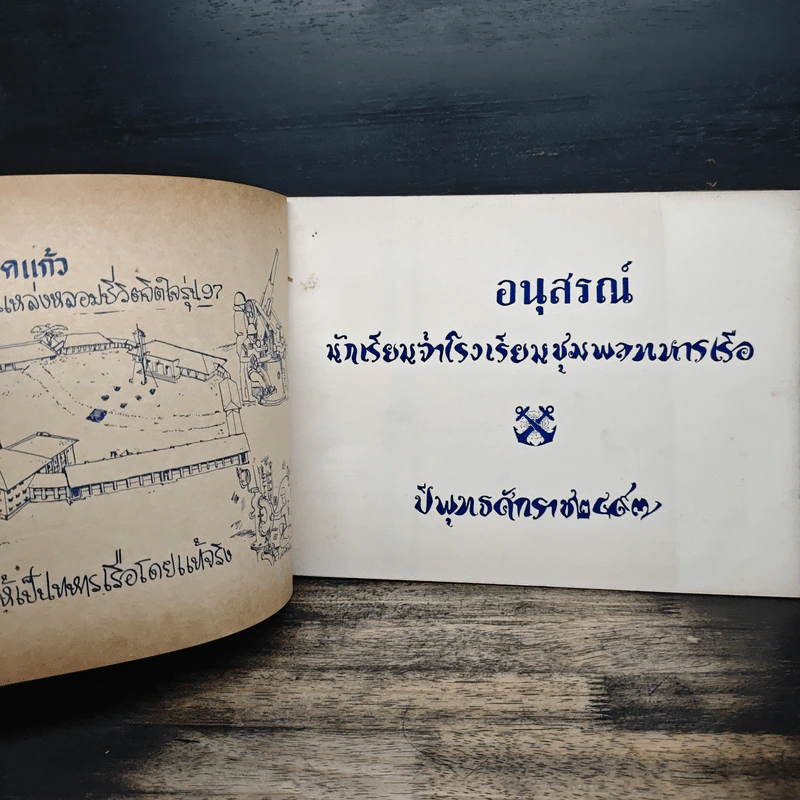 ดแก้ว
แหล่งหลอมชีวิตจิตใจรุ่น97
ให้เป็นทหารเรือโดยแท้จริง
อนุสรณ์
นักเรียนจ่าโรงเรียนชุมพลทหารเรือ
ปีพุทธศักราช๒๔๙๗